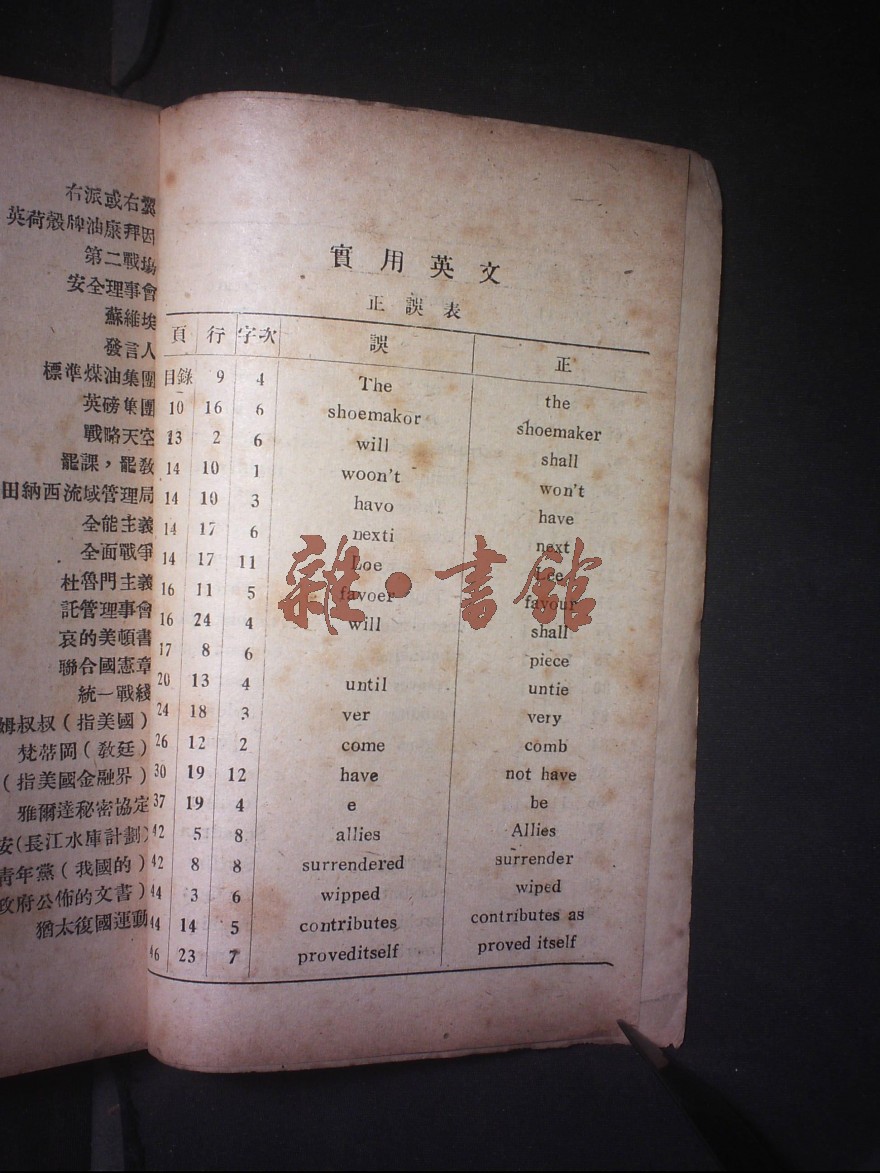 右派或右翼
英荷殼牌油康拜因
第二戰場
安全理事會
蘇維埃
發言人
標準煤油集團
英磅集團
戰略天空
罷課，罷教
田納西流域管理局
全能主義
全面戰爭
杜魯門主義
託管理事會
哀的美頓書
聯合國憲章
統一戰綫
姆叔叔（指美國）
梵蒂岡（敎廷）
（指美國金融界）
雅爾達秘密協定
安（長江水庫計劃）
青年黨（我國的）
政府公佈的文書）
猶太復國運動
實用英文
正誤表
頁 行 字次 誤 正
目錄 9 4 The the
10 16 6 shoemakor shoemaker
13 2 6 will shall
14 10 1 woon't won't
14 10 3 havo have
14 17 6 nexti next
14 17 11 Loe Lee
16 11 5 favoer favour
16 24 4 will shall
17 8 6 piece
20 13 4 until untie
24 18 3 ver very
26 12 2 come comb
30 19 12 have not have
37 19 4 e be
42 5 8 allies Allies
42 8 8 surrendered surrender
44 3 6 wipped wiped
44 14 5 contributes contributes as
46 23 7 proveditself proved itself
雜·書館